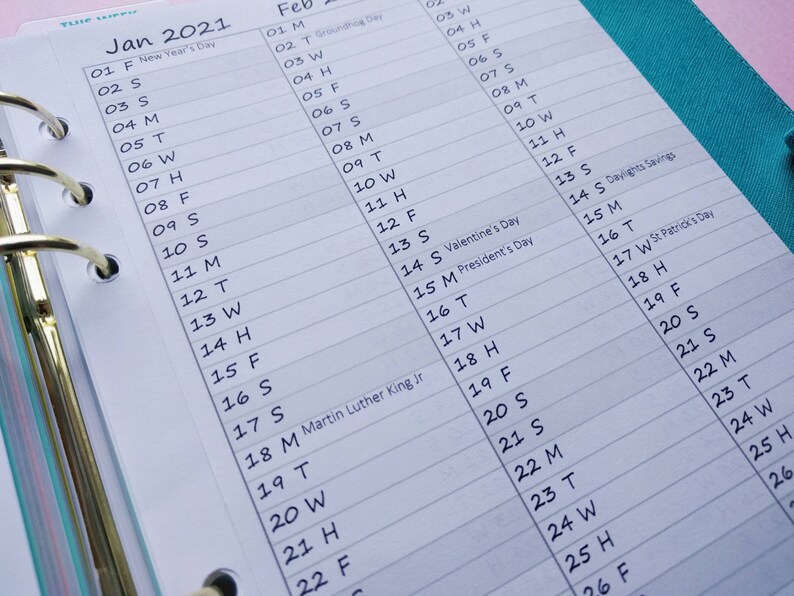 THIS WEEK
Jan 2021
01 F New Year's Day
02 S
03 S
04 M
05 T
06 W
07 H
08 F
09 S
10 S
11 M
12 T
13 W
14 H
15 F
16 S
17 S
18 M Martin Luther King Jr
19 T
20 W
21 H
22 F
Feb 2
01 M
02 T Groundhog Day
03 W
04 H
05 F
06 S
07 S
08 M
09 T
10 W
11 H
12 F
13 S
14 S Valentine's Day
15 M President's Day
16 T
17 W
18 H
19 F
20 S
21 S
22 M
23 T
24 W
25 H
26 F
02
03 W
04 H
05 F
06 S
07 S
08 M
09 T
10 W
11 H
12 F
13 S
14 S Daylights Savings
15 M
16 T
17 W St Patrick's Day
18 H
19 F
20 S
21 S
22 M
23 T
24 W
25 H
26